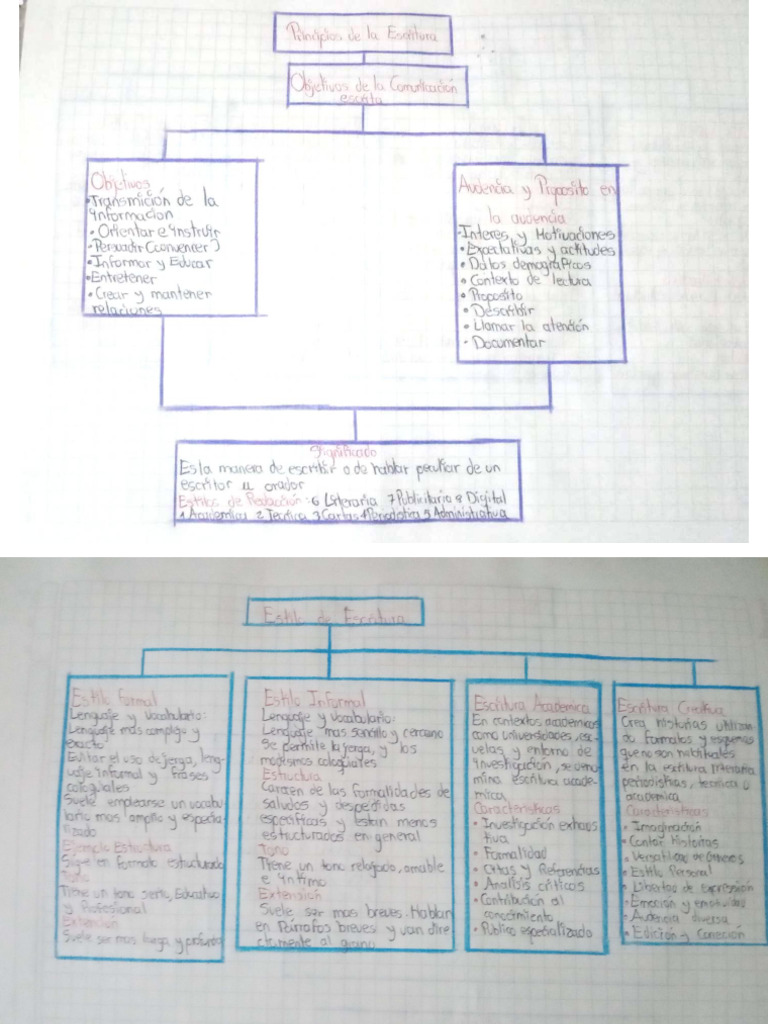 Principios de la Escritura
Objetivos de la Comunicación
escrita
Objetivos
•Transmición de la
información
• Orientar e instruir
•Persuadir (convencer)
•Informar y Educar
•Entretener
•Crear y mantener
relaciones
Audencia y Proposito en
la audencia
•Interes y Motivaciones
•Expectativas y actitudes
• Datos demográficos
• Contexto de lectura
• Proposito
• Describir
• Llamar la atención
• Documentar
Significado
Es la manera de escribir o de hablar peculiar de un
escritor u orador
Estilos de Redacción: 6 Literaria 7 Publicitario 8 Digital
1 Academica 2 Tecnica 3 Cartas 4 Periodistica 5 Administrativa
Estilo de Escritura
Estilo formal
Lenguaje y vocabulario:
Lenguaje mas complejo y
exacto
Evitar el uso de jerga, leng-
uaje informal y frases
coloquiales
Suele emplearse un vocabu-
lario mas amplio y especia-
lizado
Ejemplo Estructura
Sigue en formato estructurado
Tono
Tiene un tono serio, Educativo
y Profesional
Extensión
Suele ser mas larga y profunda
Estilo Informal
Lenguaje y vocabulario:
Lenguaje mas sencillo y cercano
se permite la jerga, y los
modismos coloquiales
Estructura
Carecen de las formalidades de
saludos y despedidas
especificas y estan menos
estructurados en general
Tono
Tiene un tono relajado, amable
e íntimo
Extensión
Suele ser mas breves. Hablan
en Párrafos breves y van dire
ctamente al grano
Escritura Academica
En contextos academicos
como universidades, esc-
uelas y entorno de
investigación, se deno-
mina escritura acadé-
mica
Caracteristicas
• Investigación exhaus
tiva
• Formalidad
• Citas y Referencias
• Analisis criticos
• Contribución al
conocimiento
• Publico especializado
Escritura Creativa
Crea historias utilizan-
do formatos y esquemas
que no son habituales
en la escritura literaria
periodistica, tecnica o
academica
Caracteristicas
• Imaginación
• Contar Historias
• Versatilidad de Géneros
• Estilo Personal
• Libertad de Expresión
• Emoción y
• Audencia diversa
• Edición y